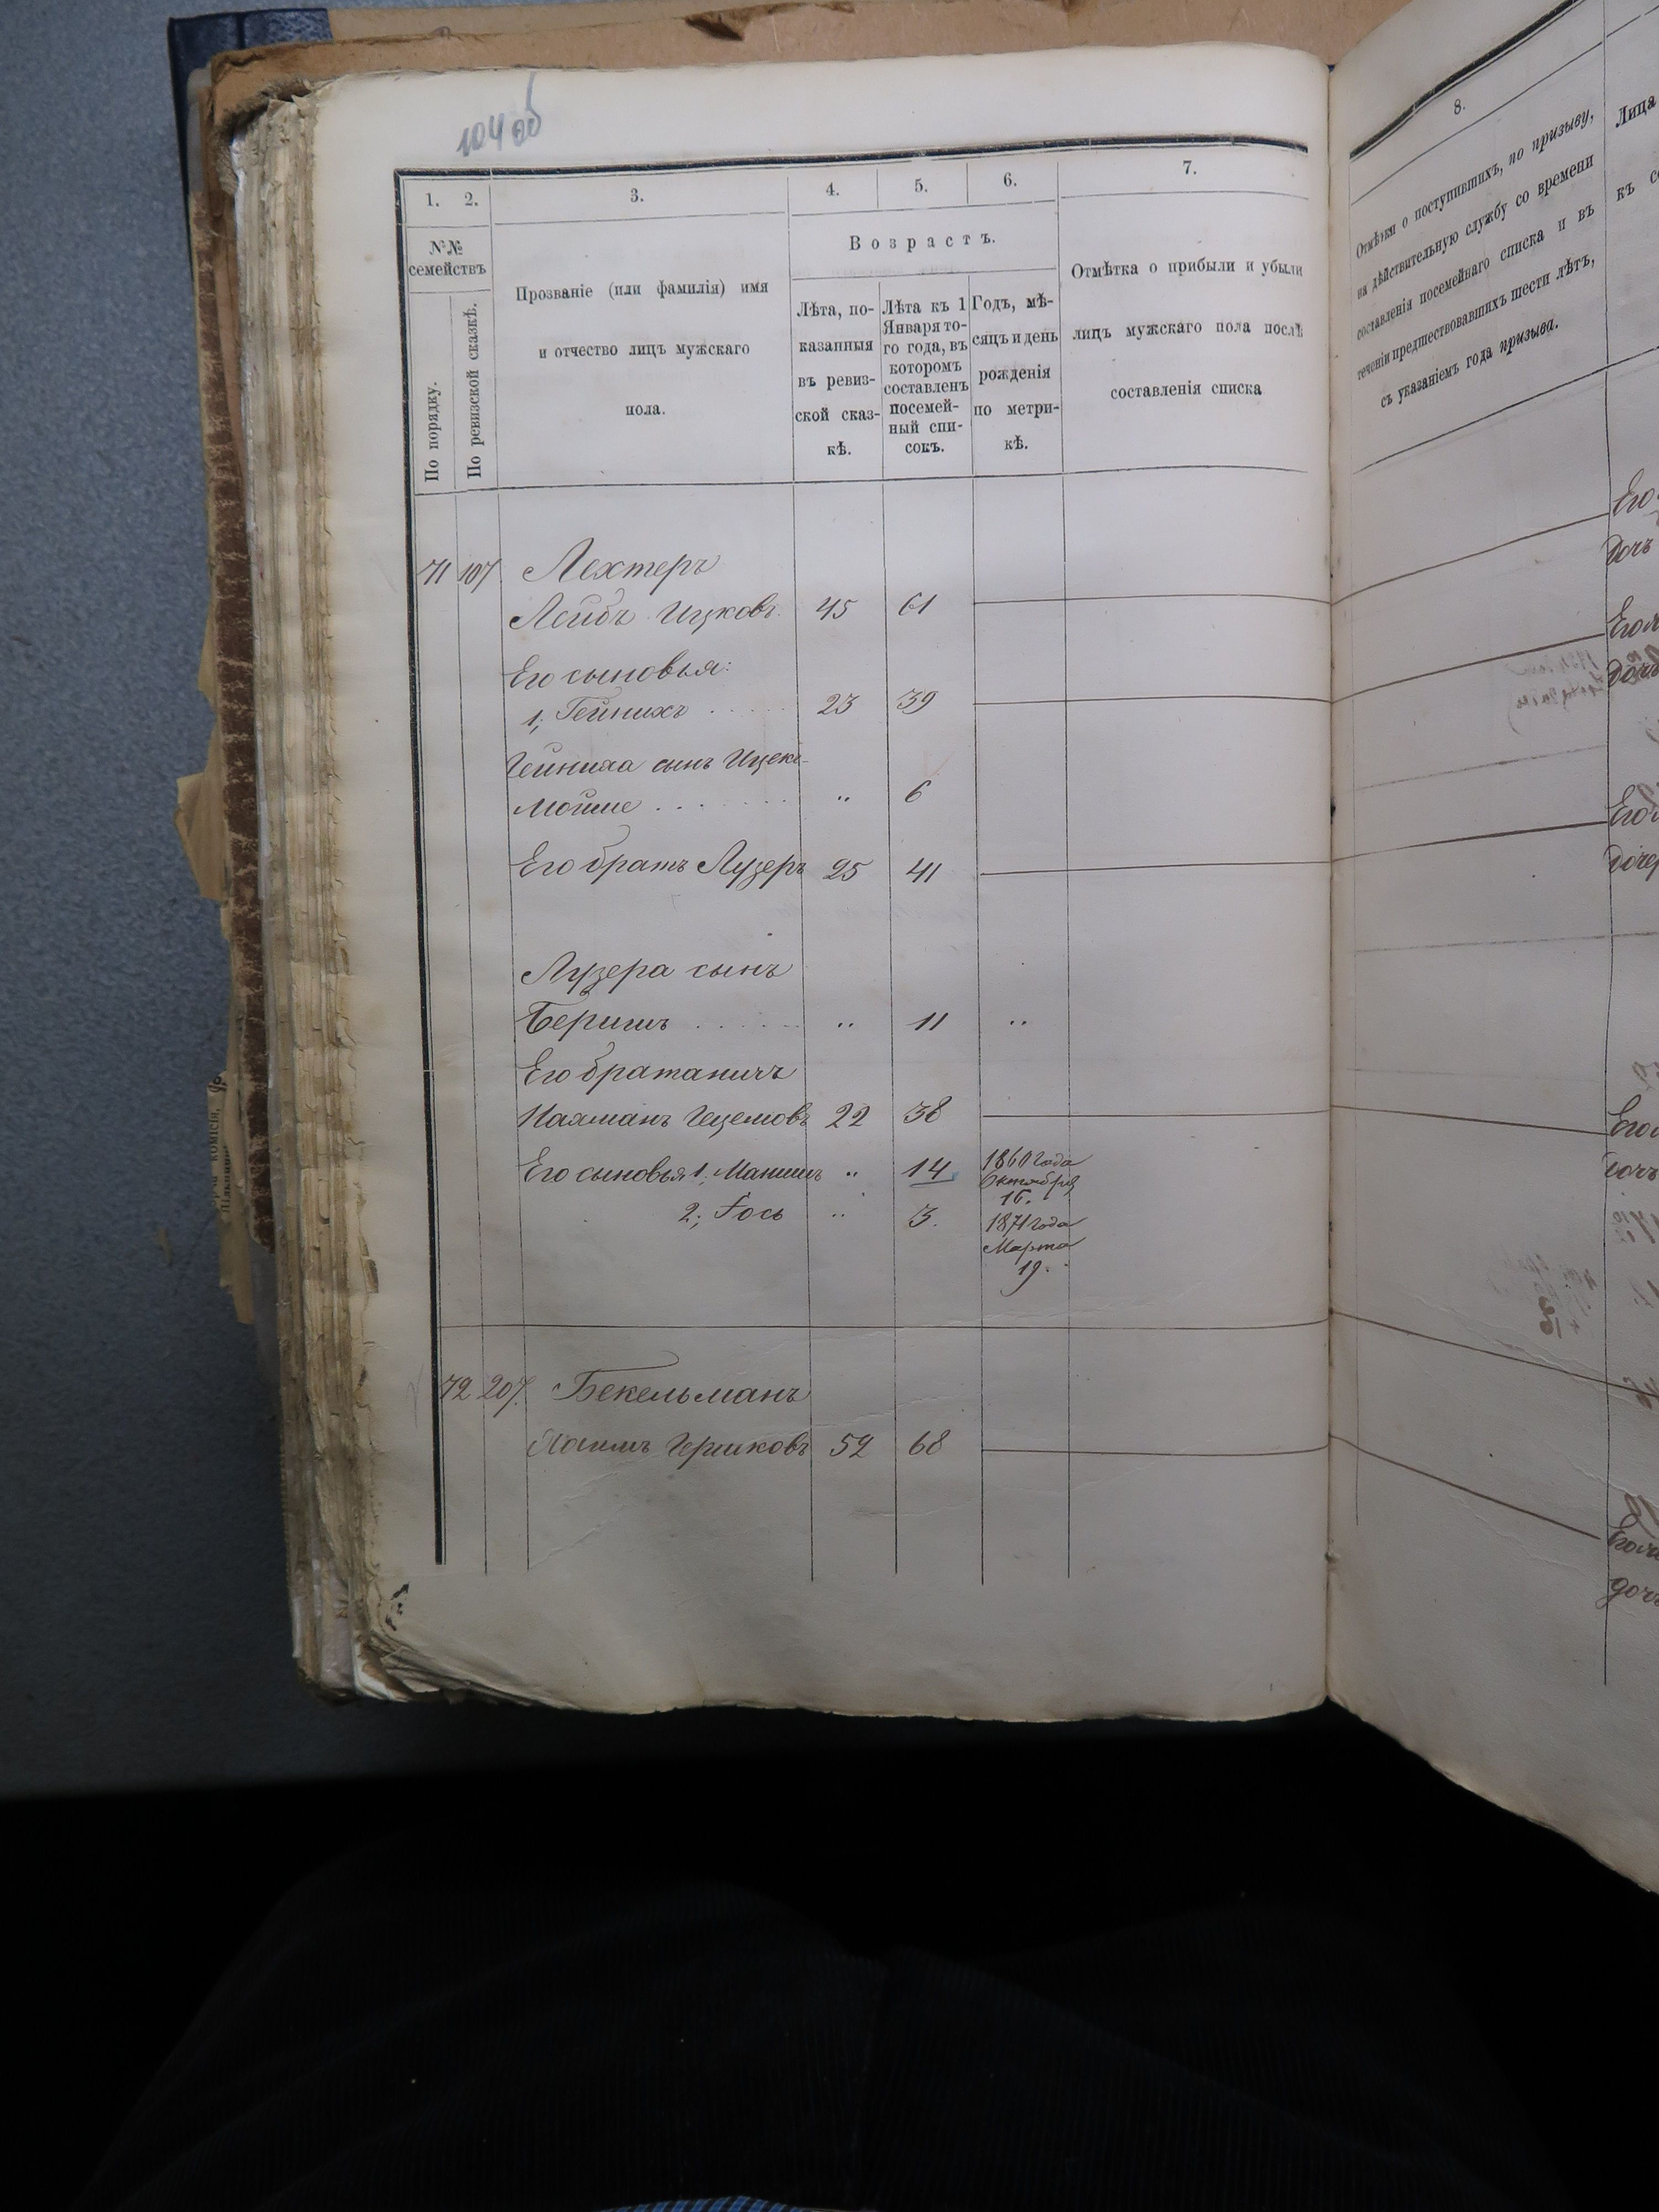 104 об
1. 2. 3. 4. 5. 6. 7.
№№
семействъ
По порядку.
По ревизской сказкѣ.
Прозваніе (или фамилія) имя
и отчество лицъ мужскаго
пола.
Возрастъ.
Лѣта, по-
казанныя
въ ревиз-
ской сказ-
кѣ.
Лѣта къ 1
Января то-
го года, въ
которомъ
составленъ
посемей-
ный спи-
сокъ.
Годъ, мѣ-
сяцъ и день
рожденія
по метри-
кѣ.
Отмѣтка о прибыли и убыли
лицъ мужскаго пола послѣ
составленія списка
71 107 Лехтеръ
Лейбъ Ицковъ 45 61
Его сыновья:
1, Гейнихъ 23 39
Гейниха сынъ Ицекъ-
Мойше " 6
Его братъ Лузеръ 25 41
Лузера сынъ
Беришъ " 11 "
Его братаничъ
Нахманъ Гецелювъ 22 38
Его сыновья 1, Манишъ " 14 1860 года
Октября
16.
2; Іось " 3. 1871 года
Марта
19.
72 207. Бекельманъ
Хаимъ Гершковъ 52 68
8.
Отмѣтки о поступившихъ, по призыву,
на дѣйствительную службу со времени
составленія посемейнаго списка и въ
теченіи предшествовавшихъ шести лѣтъ,
съ указаніемъ года призыва.
Лица
къ
Его
дочь
Его
дочь
Его
дочер
Его
дочь
Его
дочь